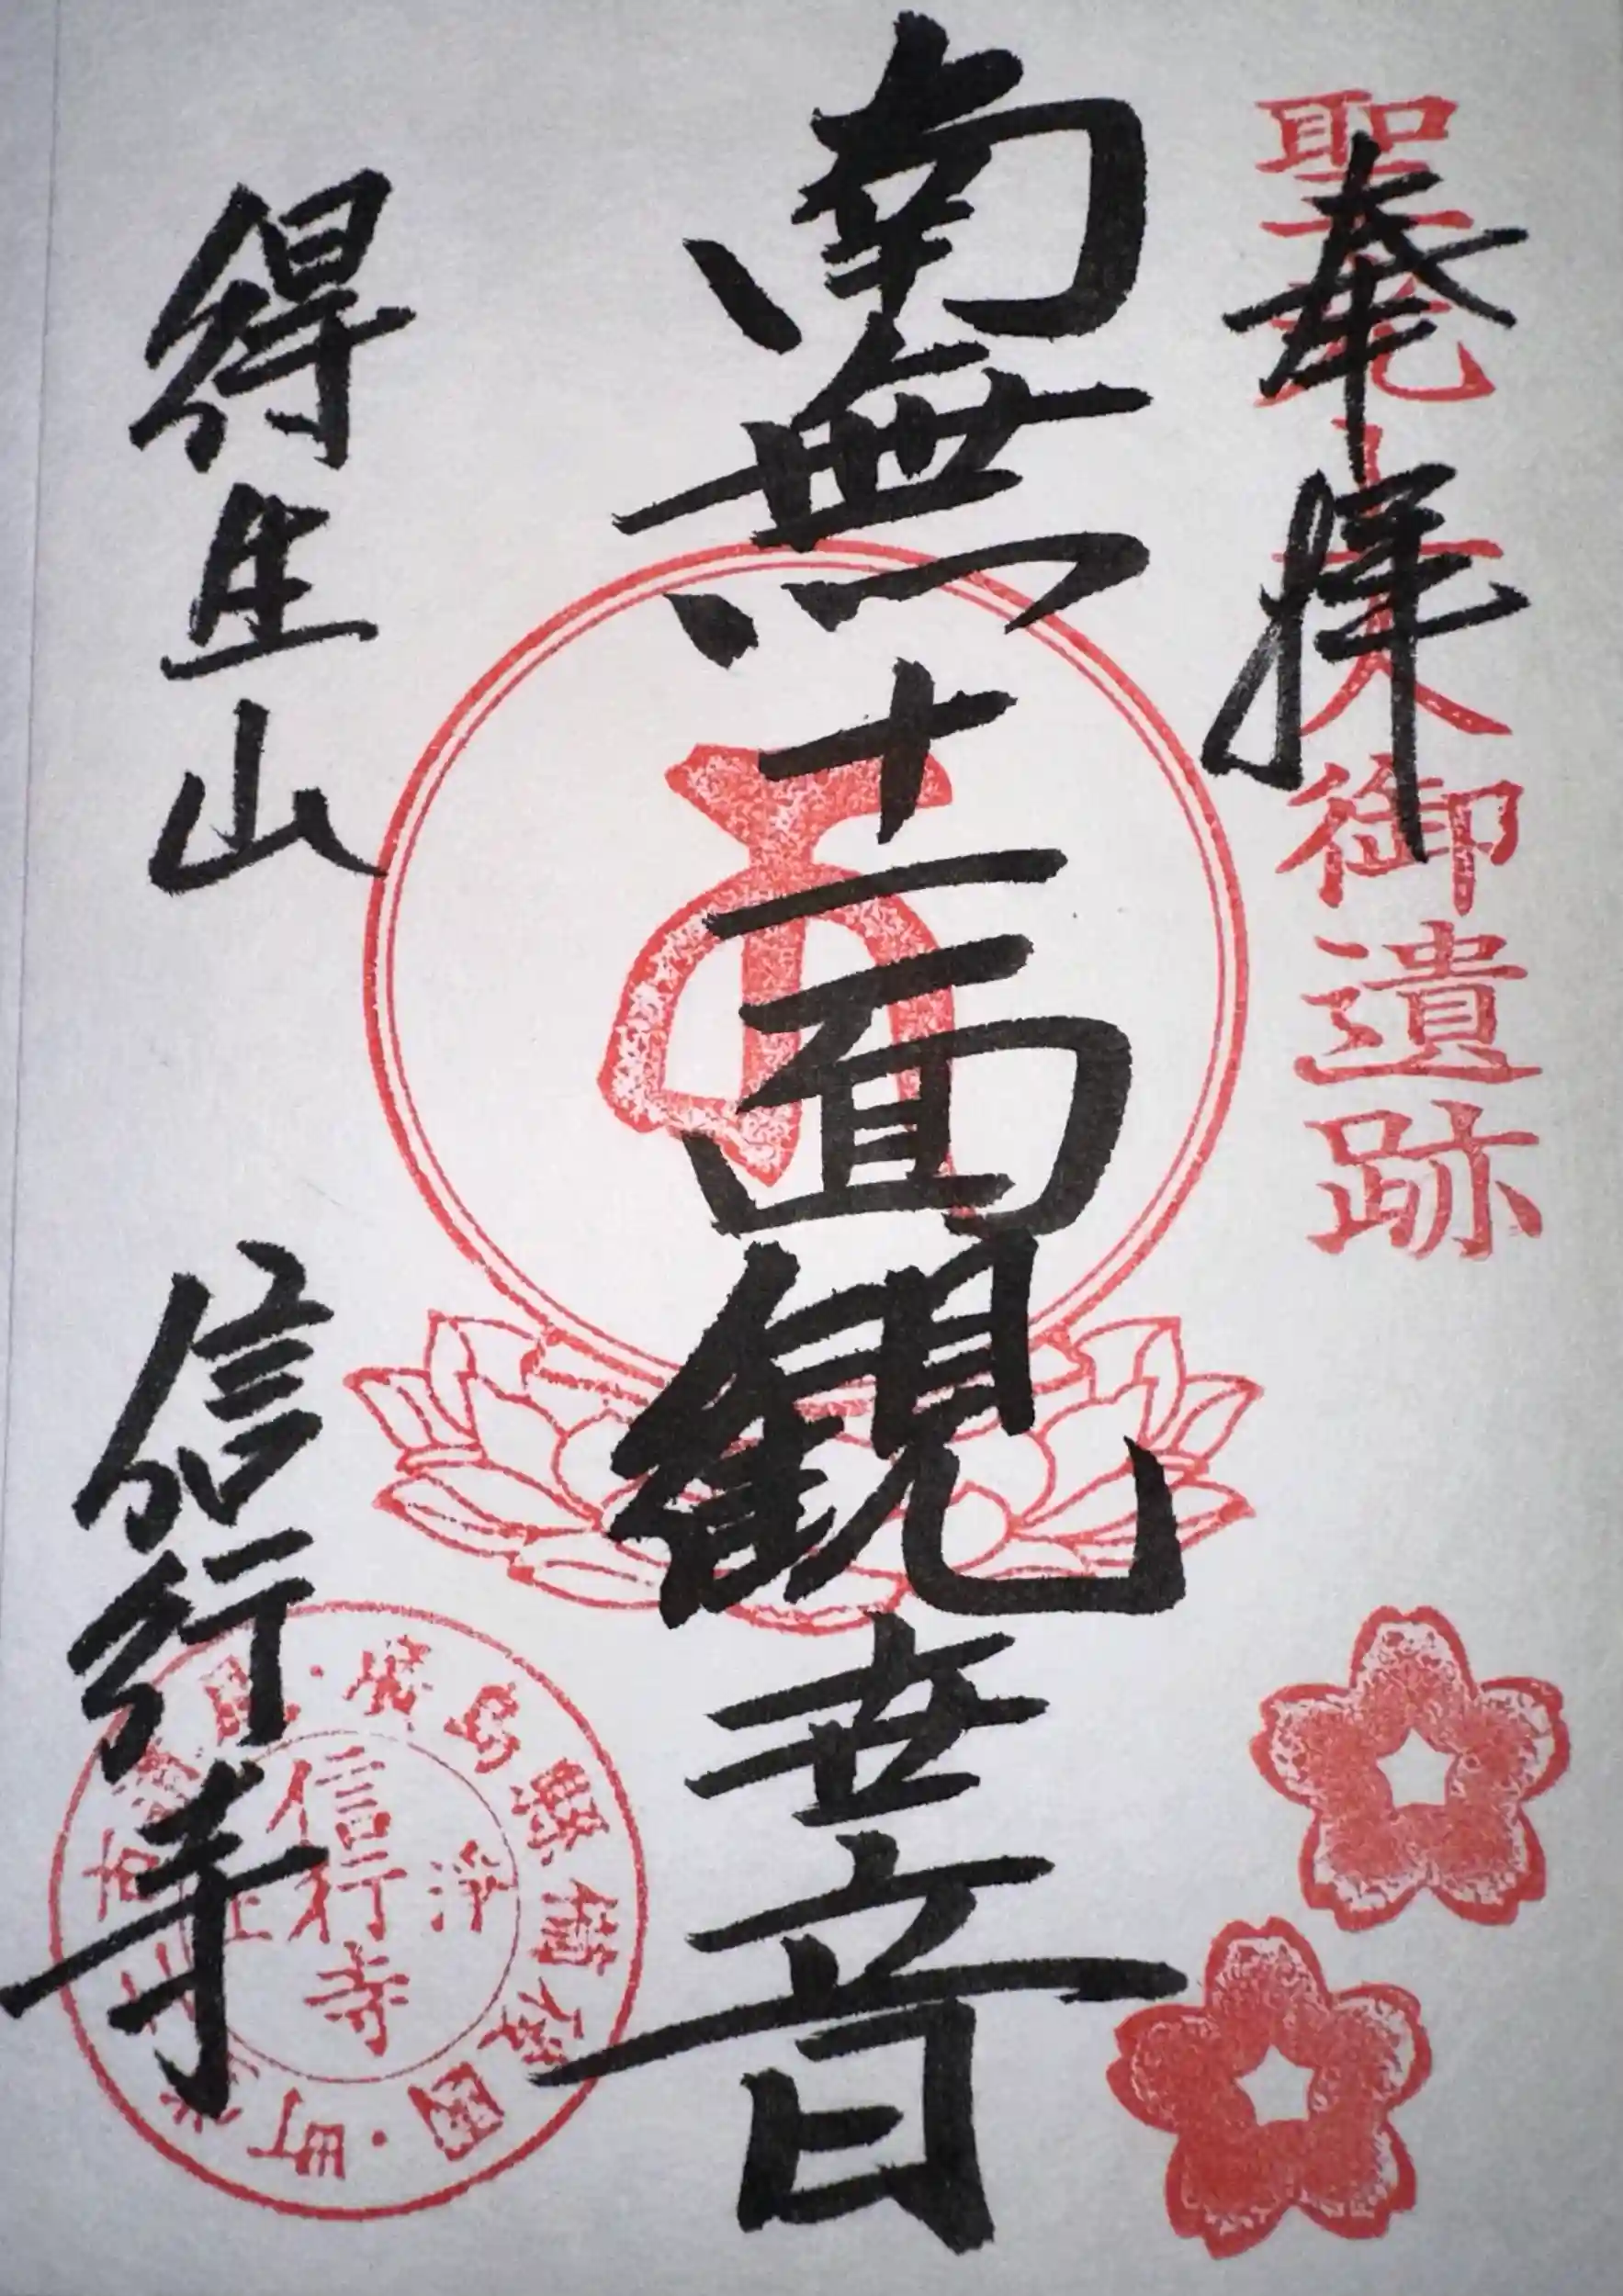 奉拝
聖光上人御遺跡
南無十一面観世音
得生山 信行寺
信行寺
浄土